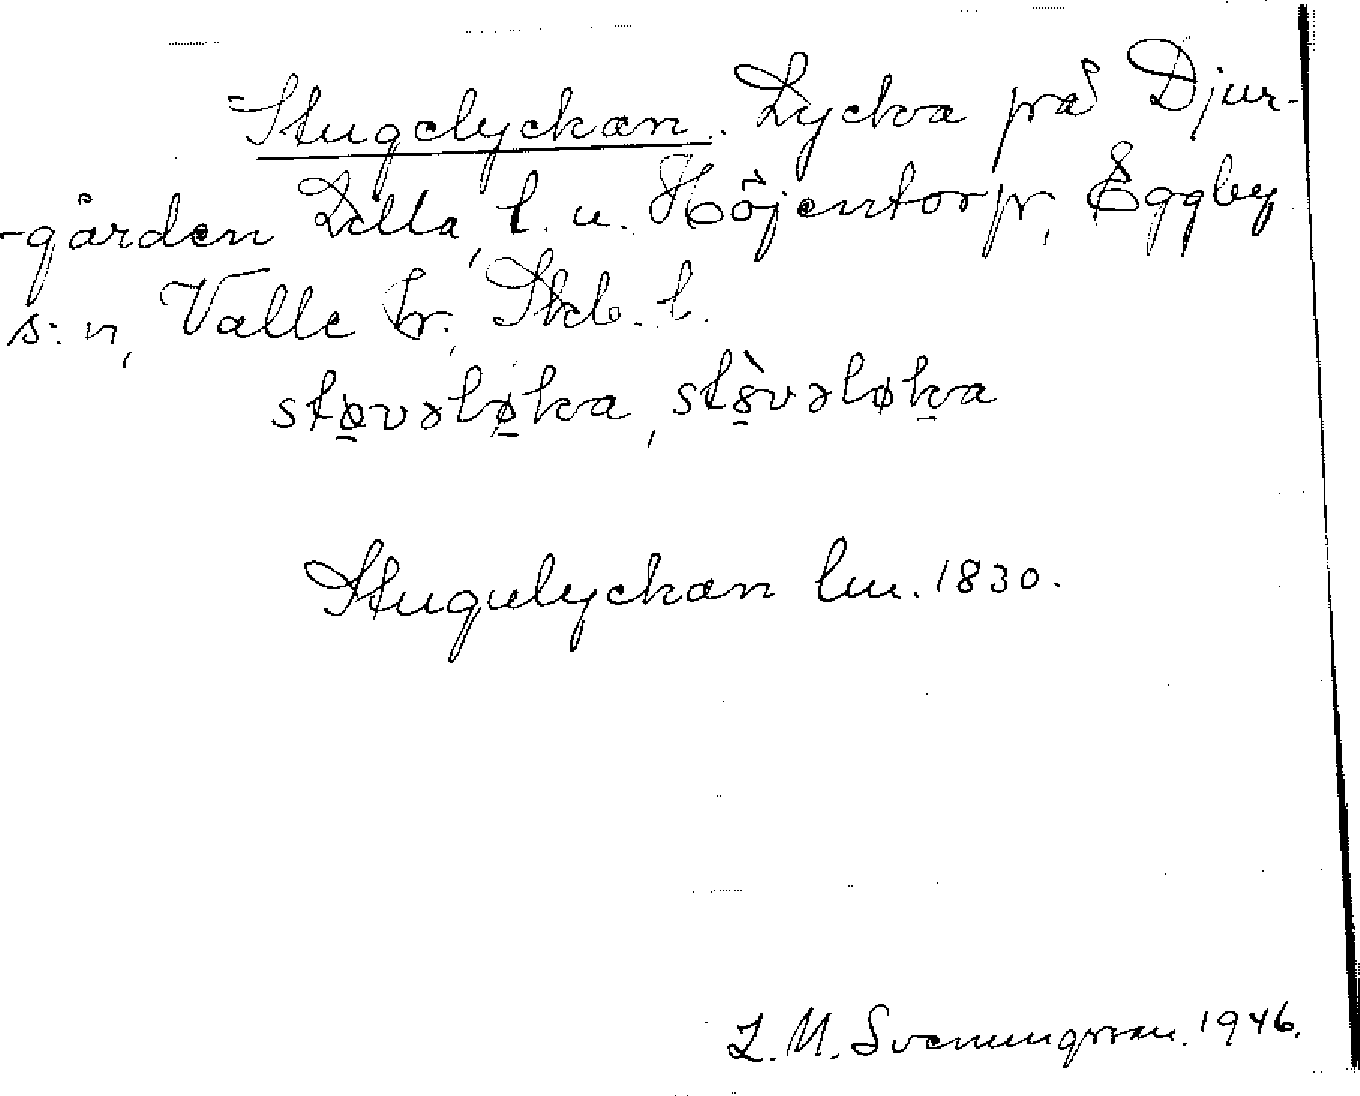 Stugelyckan. Lycka på Djur-
-gården Lilla, l. u. Höjentorp, Eggby
s:n, Valle hr., Skb. l.
støvəløka, stòvəløka
Stugulyckan lm. 1830.
L. M. Svenungsson. 1946.